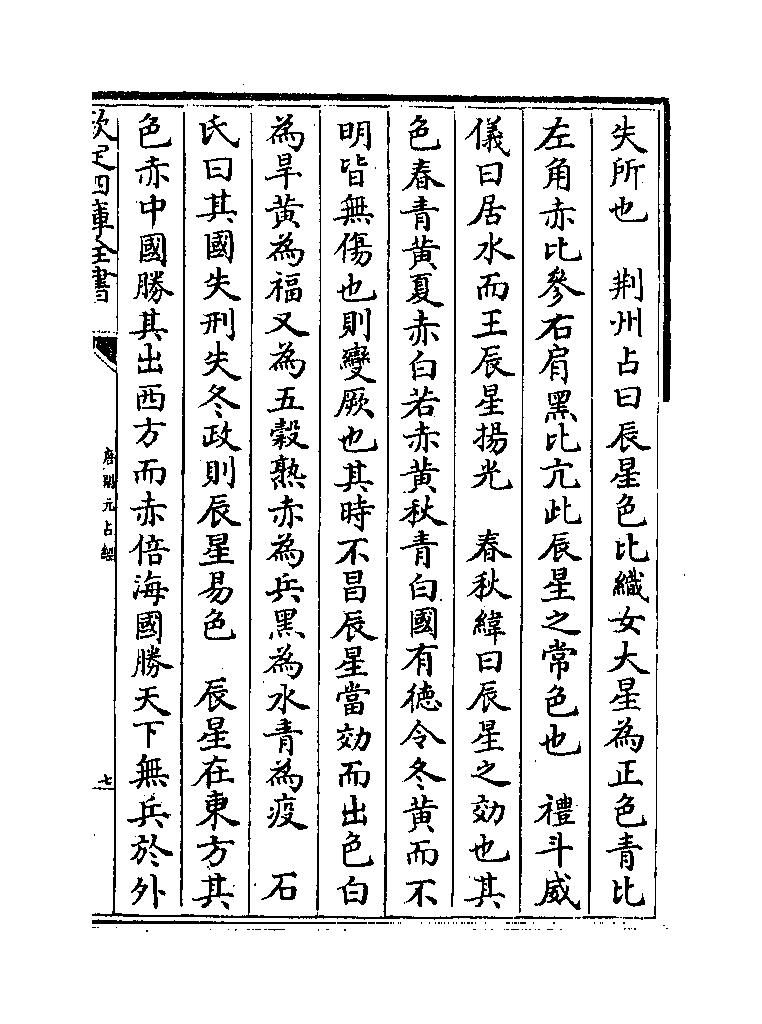 失所也　荆州占曰辰星色比織女大星為正色青比
左角赤比參右肩黑比亢此辰星之常色也　禮斗威
儀曰居水而王辰星揚光　春秋緯曰辰星之効也其
色春青黄夏赤白若赤黄秋青白國有徳令冬黄而不
明皆無傷也則變厥也其時不昌辰星當効而出色白
為旱黄為福又為五穀熟赤為兵黑為水青為疫　石
氏曰其國失刑失冬政則辰星易色　辰星在東方其
色赤中國勝其出西方而赤倍海國勝天下無兵於外
欽定四庫全書
唐開元占經
七